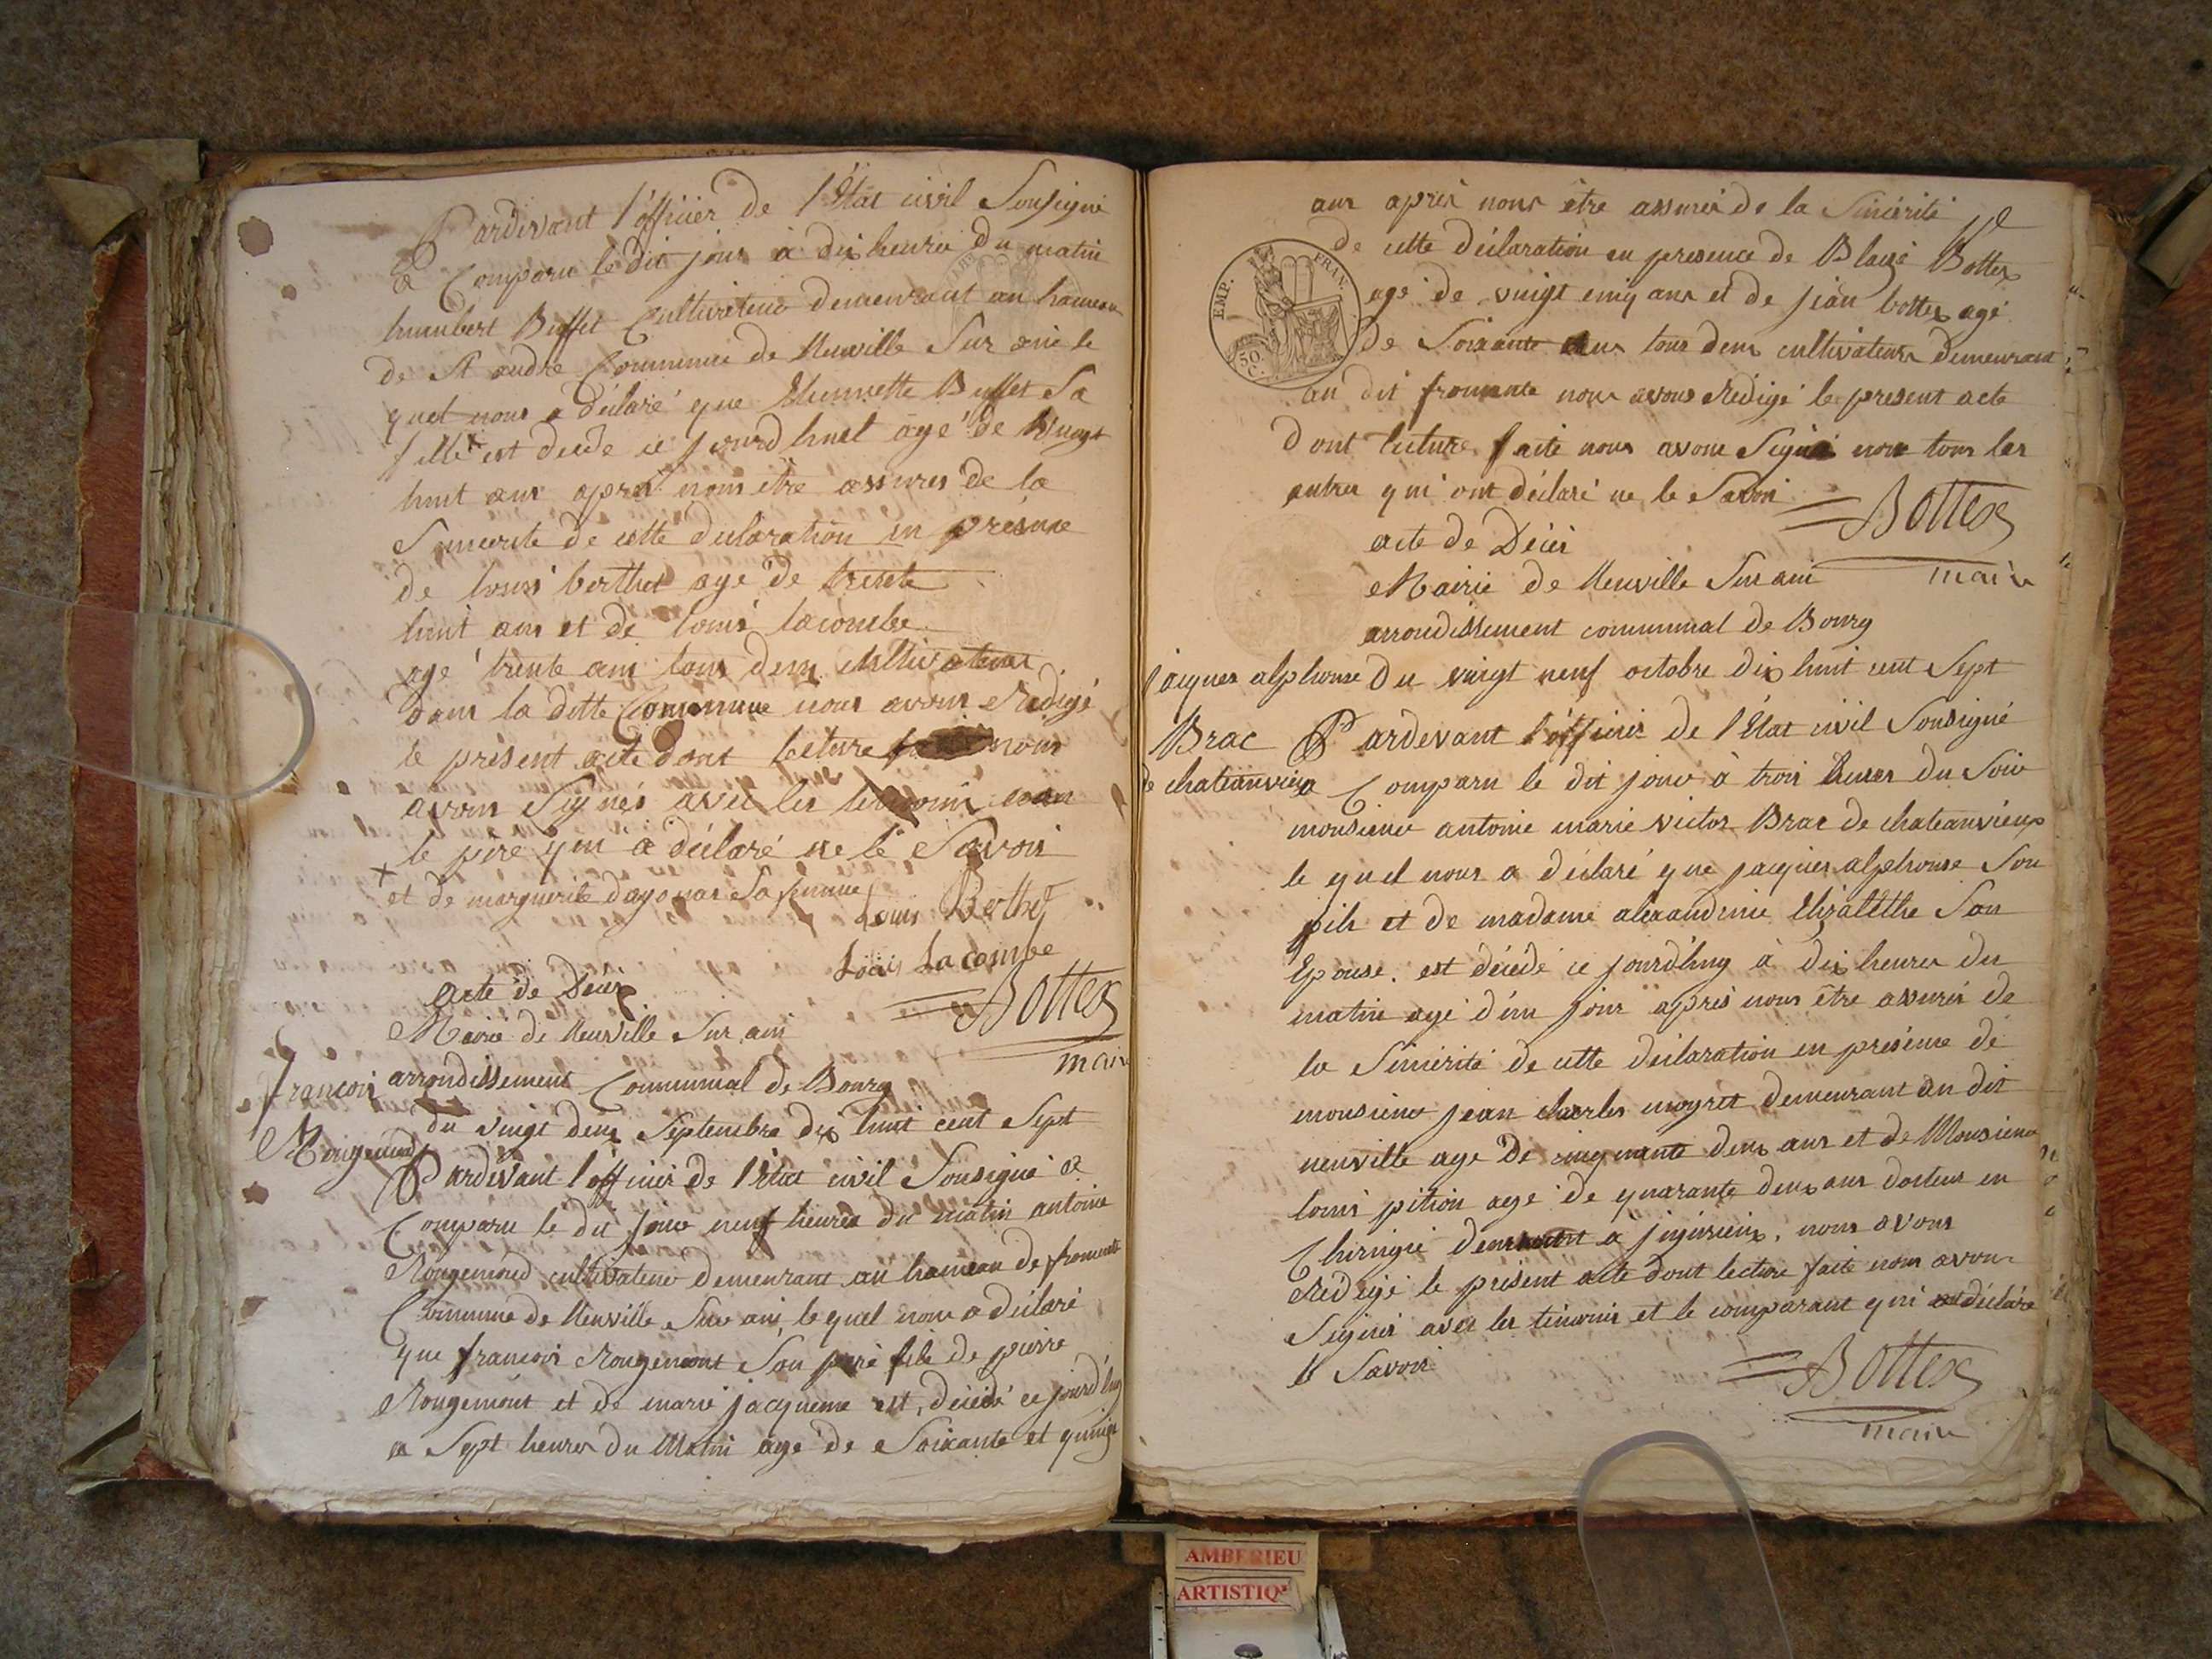 Pardevant l'officier de l'Etat civil Sousigné
a Comparu le dit jour à dix heures du matin
humbert Buffet Cultivateur demeurant au hameau
de St andré Commune de Neuville Sur ain le
quel nous a déclaré que Etiennette Buffet Sa
fille x est décédé ce jourd'huit agé de
huit ans apres nous être assures de la
Sincerité de cette déclaration en présence
de louis berthet age de trente
huit ans et de louis lacombe
agé trente ans tous deux cultivateurs
dans la ditte Commune nous avons Rédigé
le présent acte dont lecture nous
avons Signés avec les temoins non
le père qui a déclaré ne le Savoir
x et de marguerite dagonas Sa femme
Louis Berthet
Louis Lacombe
Bottex
maire
acte de Décès
Mairie de Neuville Sur ain
arrondissement Communal de Bourg
françois
Rougemond
du vingt deux Septembre dix huit cent Sept
Pardevant l'officier de l'Etat civil Sousigné a
Comparu le dit jour neuf heures du matin antoine
Rougemond cultivateur demeurant au hameau de fromente
Commune de Neuville Sur ain le quel nous a déclaré
que françois Rougemont Son pere fils de pierre
Rougemont et de marie jacqueme est décédé ce jourd'huy
a Sept heures du Matin age de Soixante et quinze
ans après nous être assurés de la Sincérité
de cette déclaration en presence de Blaise Bottex
EMP. FRAN.
50 C.
agé de vingt cinq ans et de jean bottex agé
de Soixante ans tous deux cultivateurs demeurant
au dit fromente nous avons Rédigé le present acte
dont lecture faite nous avons Signé non tous les
autres qui ont déclaré ne le Savoir
Bottex
maire
acte de Décès
Mairie de Neuville Sur ain
arrondissement communal de Bourg
jacques alphonse
Brac
de chateauvieux
Du vingt neuf octobre dix huit cent Sept
Pardevant l'officier de l'Etat civil Sousigné
a Comparu le dit jour à trois heures du Soir
monsieur antoine marie victor Brac de chateauvieux
le quel nous a déclaré que jacques alphonse Son
fils et de madame alexandrine Elizabethe Son
Epouse. est décédé ce jourd'huy à dix heures du
matin agé d'un jour après nous être assurés de
la Sincérité de cette déclaration en présence de
monsieur jean charles moyret demeurant au dit
neuville age de cinquante deux ans et de Monsieur
louis pition agé de quarante deux ans docteur en
Chirurgie demeurant a jujurieux, nous avons
Rédigé le présent acte dont lecture faite nous avons
Signés avec les témoins et le comparant qui ont déclaré
le Savoir
Bottex
maire
AMBERIEU
ARTISTIQ